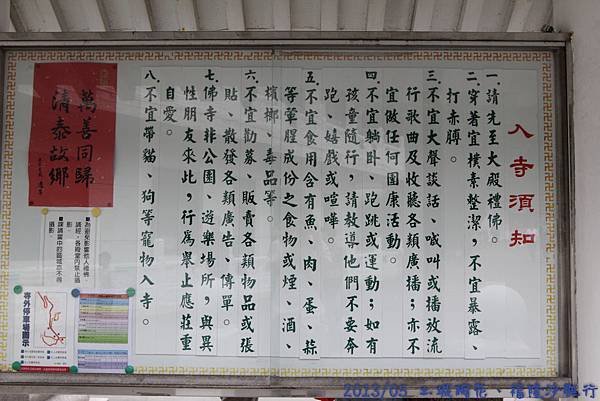 入寺須知
一、請先至大殿禮佛。
二、穿著宜樸素整潔，不宜暴露、
打赤膊。
三、不宜大聲談話、喊叫或播放流
行歌曲及收聽各類廣播；亦不
宜做任何團康活動。
四、不宜躺卧、跑跳或運動；如有
孩童隨行，請教導他們不要奔
跑、嬉戲或喧嘩。
五、不宜食用含有魚、肉、蛋、蒜
等葷腥成份之食物或煙、酒、
檳榔、毒品等。
六、不宜勸募、販賣各類物品或張
貼、散發各類廣告、傳單。
七、佛寺非公園、遊樂場所，與異
性朋友來此，行為舉止應莊重
自愛。
八、不宜帶貓、狗等寵物入寺。
萬善同歸
清泰故鄉
■為避免影響他人禮佛、
誦經，各殿堂內禁止攝
影。
寺外停車場圖示
2013/05